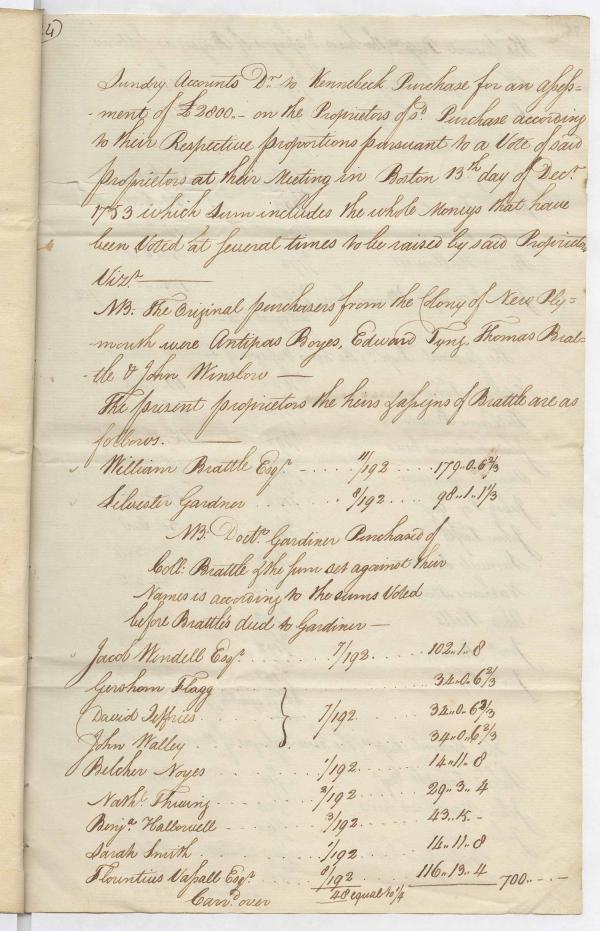 24)
Sundry Accounts Dr. to Kennebeck Purchase for an assess=
=ment of £2800.- on the Proprietors of sd. Purchase according
to their Respective proportions pursuant to a Vote of said
Proprietors at their Meeting in Boston 13th day of Decr.
1753 which Sum includes the whole Moneys that have
been Voted at several times to be raised by said Proprietors
Vizt.
NB: The Original purchasers from the Colony of New Ply=
=mouth were Antipas Boyes, Edward Tyng, Thomas Brat=
=tle & John Winslow
The present proprietors the heirs & assigns of Brattle are as
follows.
William Brattle Esqr. 11/192 179..0..6 2/3
Silvester Gardner 8/192 98..1..1 1/3
NB: Doctr. Gardiner Purchased of
Coll: Brattle & the sum set against their
Names is according to the sums Voted
before Brattle's deed to Gardiner
Jacob Wendell Esqr. 7/192 102..1..8
Gersham Flagg 34..0..6 2/3
David Jeffries } 7/192 34..0..6 2/3
John Walley 34..0..6 2/3
Belcher Noyes 1/192 14..11..8
Nathl. Thwing 2/192 29..3..4
Benja. Hallowell 3/192 43..15..-
Sarah Smith 1/192 14..11..8
Florentius Vassall Esqr. 8/192 116..13..4 700..-..-
Carrd. over 48 equal to 1/4